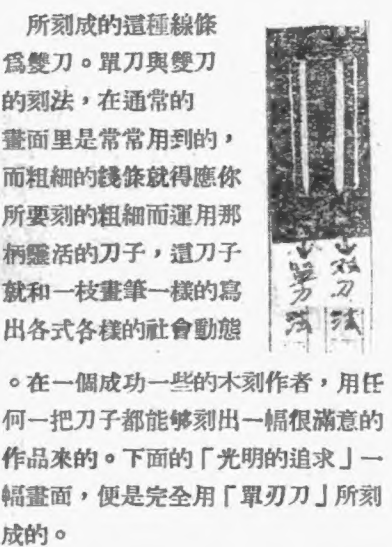 所刻成的這種線條
爲雙刀。單刀與雙刀
的刻法，在通常的
畫面里是常常用到的，
而粗細的綫條就得應你
所要刻的粗細而運用那
柄靈活的刀子，這刀子
就和一枝畫筆一樣的寫
出各式各樣的社會動態
。在一個成功一些的木刻作者，用任
何一把刀子都能够刻出一幅很滿意的
作品來的。下面的「光明的追求」一
幅畫面，便是完全用「單刃刀」所刻
成的。
↓双刀法
↓單刀法